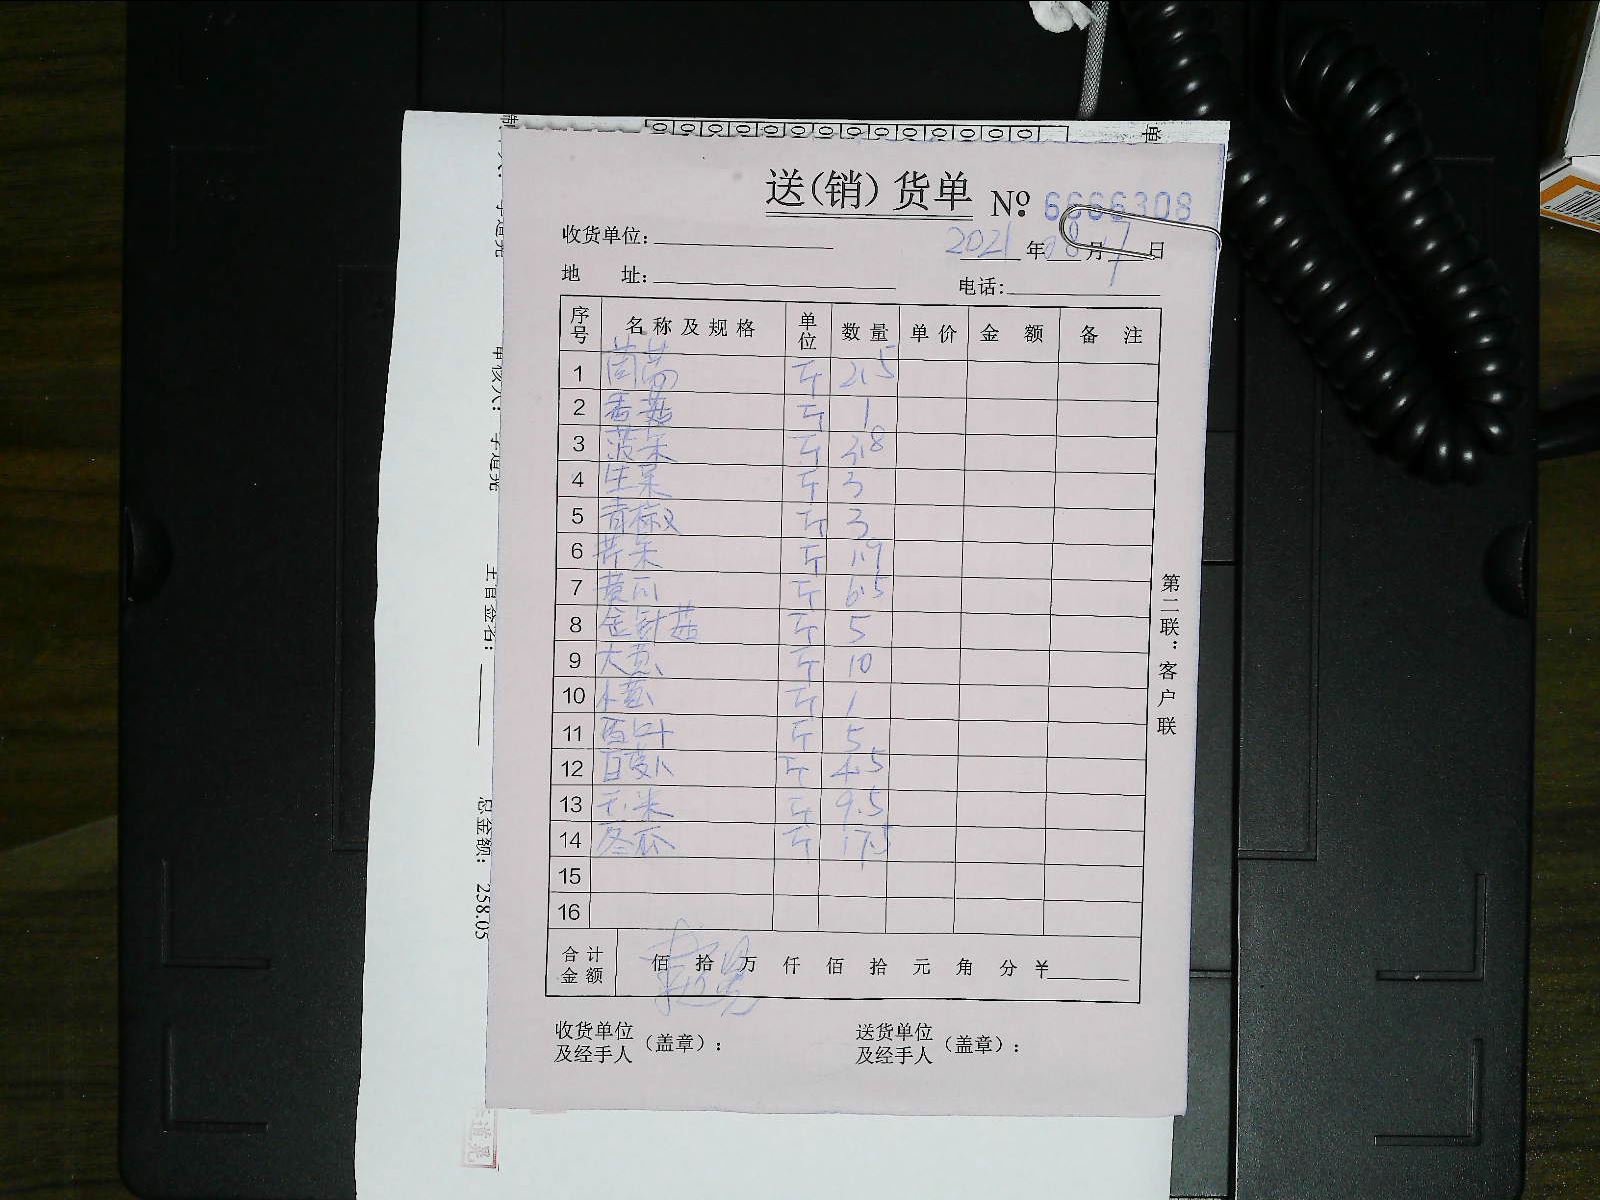 送(销)货单 No. 6666308
收货单位: 2021 年 08 月 7 日
地 址: 电话:
序号 名称及规格 单位 数量 单价 金额 备注
1 茼蒿 斤 2.5
2 香菇 斤 1
3 菠菜 斤 3.8
4 生菜 斤 3
5 青椒 斤 3
6 芹菜 斤 1.9
7 黄瓜 斤 6.5
8 金针菇 斤 5
9 大葱 斤 10
10 小葱 斤 1
11 西叶 斤 5
12 白萝卜 斤 4.5
13 玉米 斤 9.5
14 冬瓜 斤 17.5
15
16
合计金额 佰 拾 万 仟 佰 拾 元 角 分 ¥
收货单位及经手人(盖章):
送货单位及经手人(盖章):
第二联:客户联
审核人:
主管签名:
总金额: 258.05